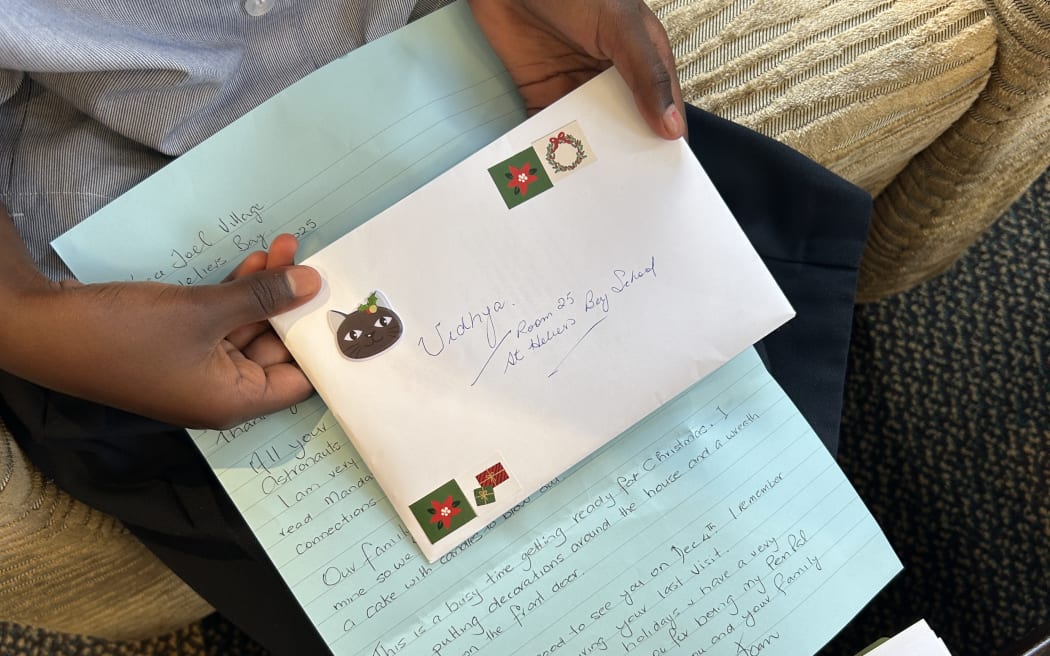 Joel Village
Heliers Bay
25
Vidhya.
Room 25
St Heliers Bay School
All your
Astronauts
I am very
read Manda
connections
Our famil
mine so we
a cake with candles to blow out
This is a busy time getting ready for Christmas. I
putting decorations around the house and a wreath
on the front door.
good to see you on Dec 4th I remember
uring your last visit.
holidays & have a very
u for being my Pen Pal
ou and your family